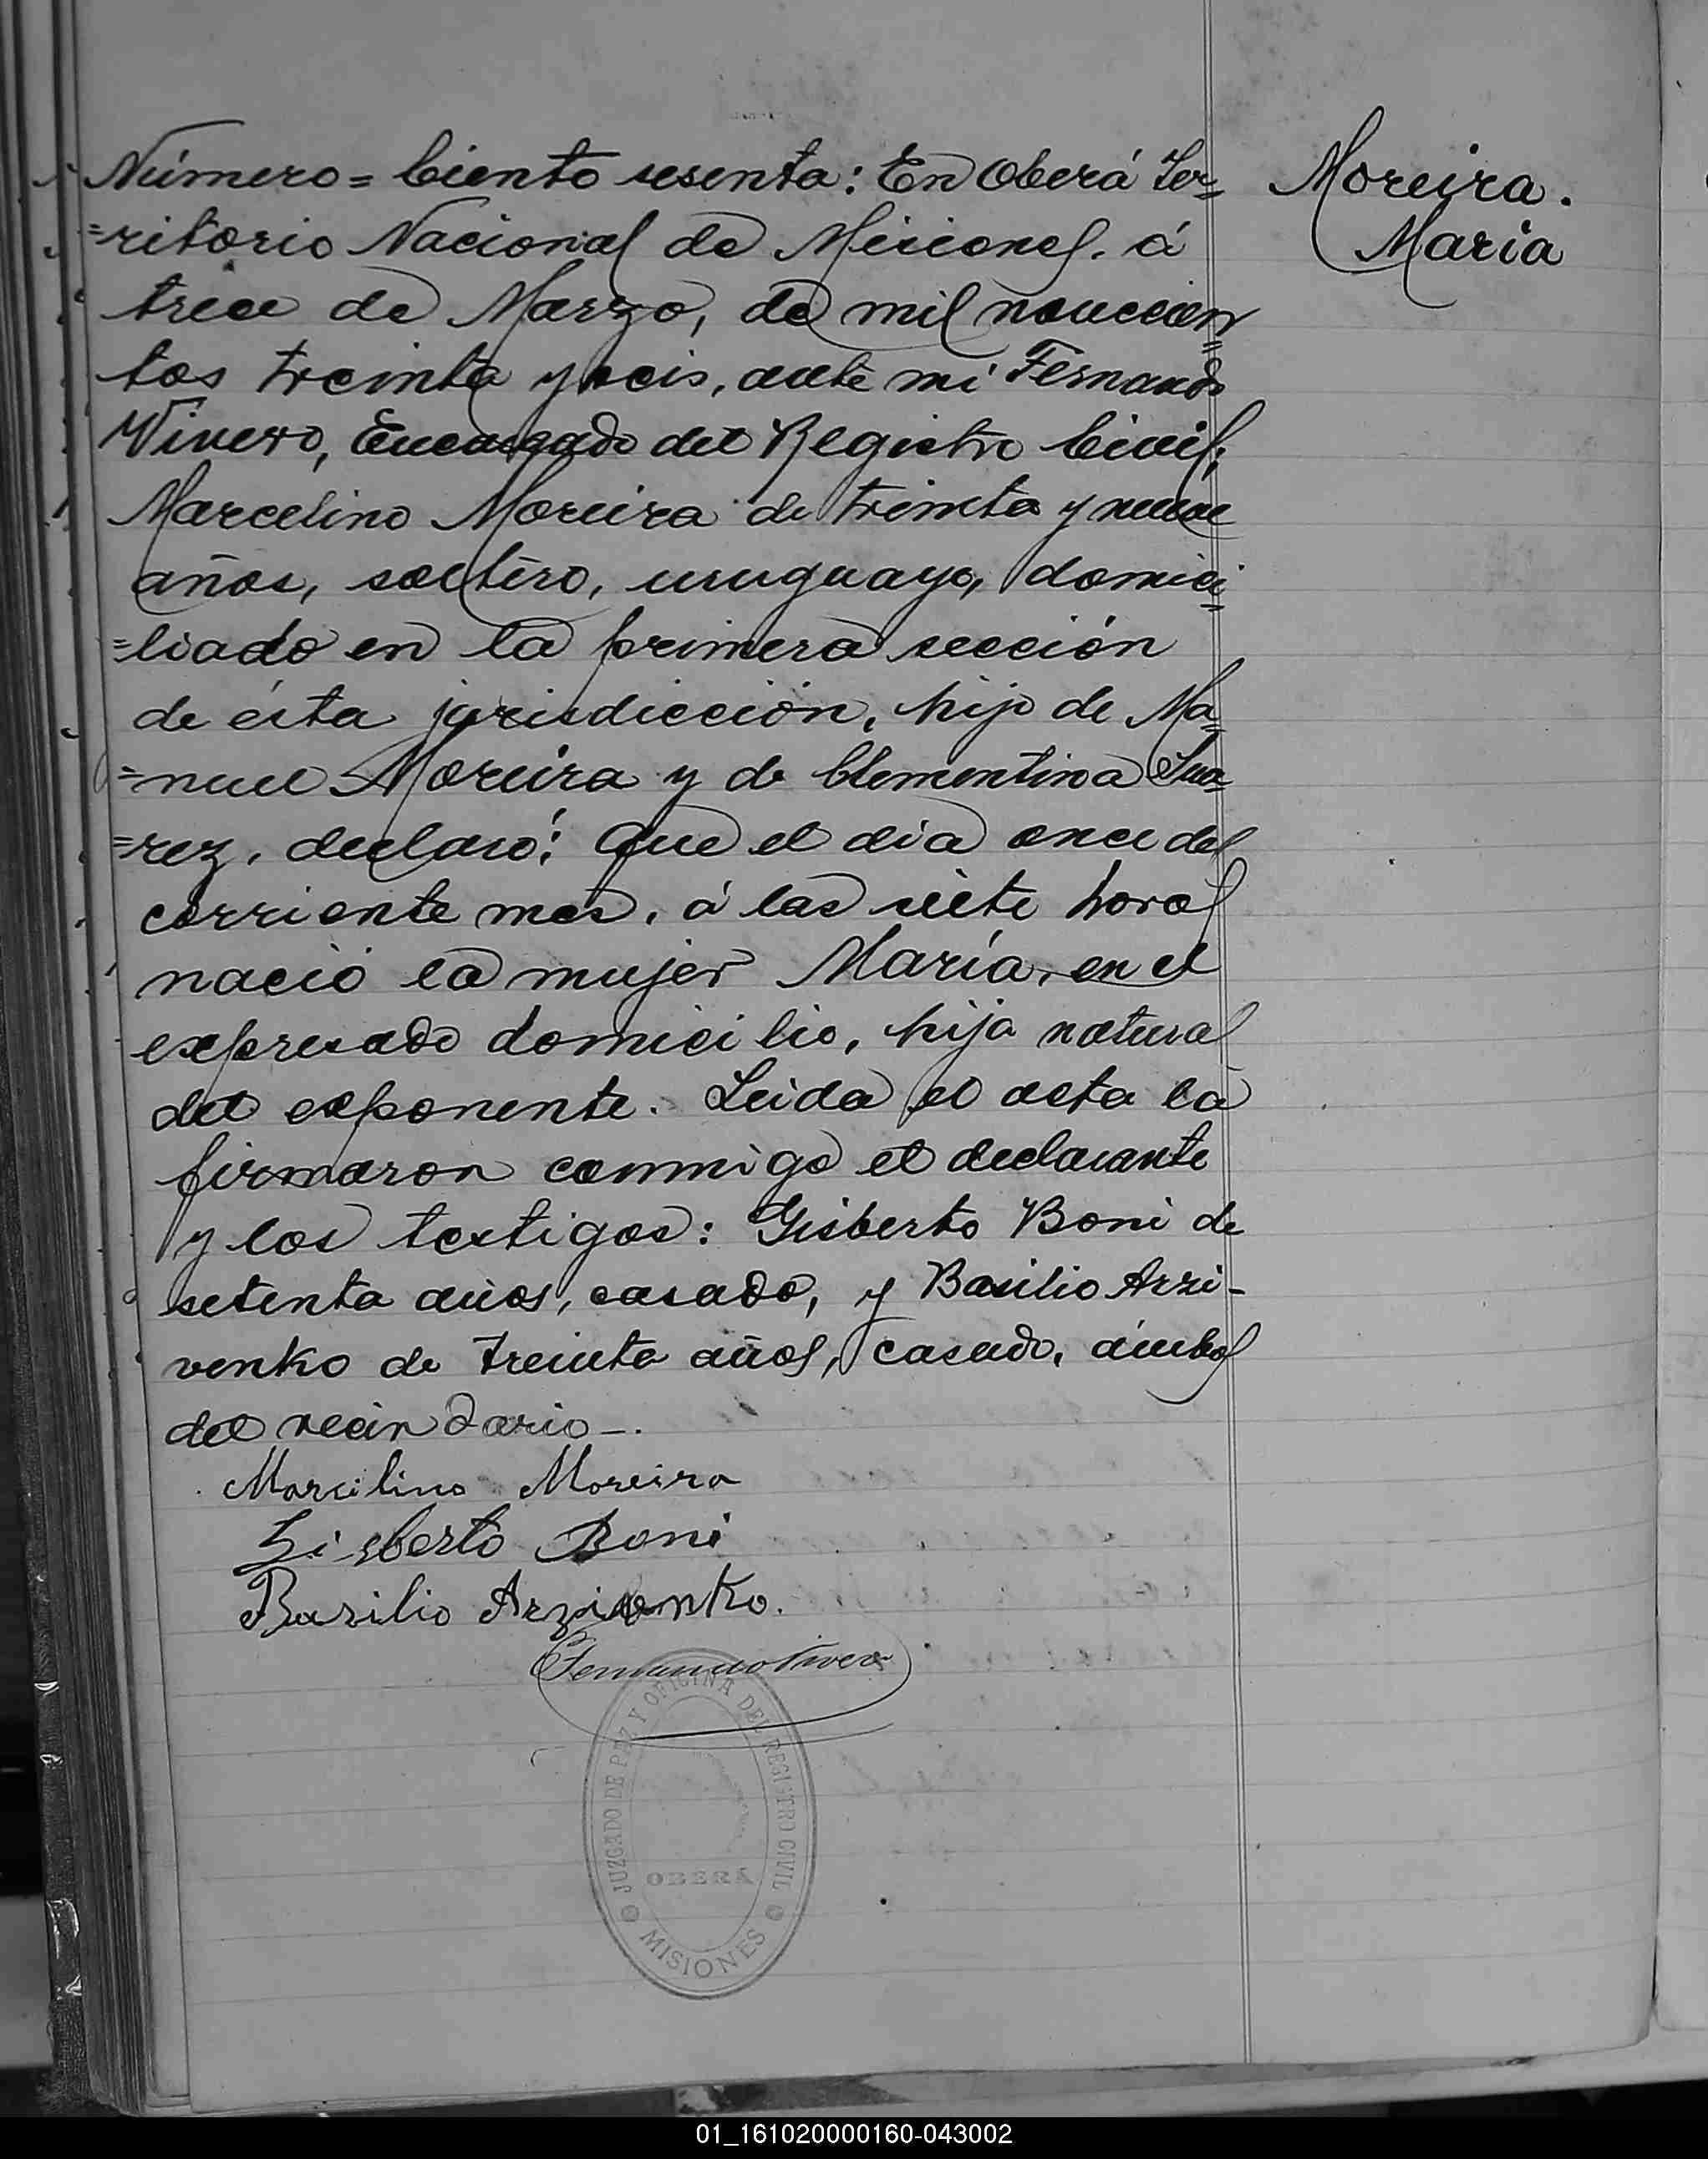 Número= Ciento sesenta: En Oberá Ter=
=ritorio Nacional de Misiones. á
trece de Marzo, de mil novecien=
tos treinta y seis, ante mi Fernando
Vivero, Encargado del Registro Civil;
Marcelino Moreira de treinta y nueve
años, soltero, uruguayo, domici=
=liado en la primera sección
de ésta jurisdicción, hijo de Ma=
=nuel Moreira y de Clementina Sua=
=rez, declaró: Que el dia once del
corriente mes, á las siete horas
nació la mujer María, en el
expresado domicilio, hija natural
del exponente. Leida el acta la
firmaron conmigo el declarante
y los testigos: Gisberto Boni de
setenta años, casado, y Basilio Arzi-
venko de treinta años, casado, ámbos
del vecindario-.
Moreira.
Maria
Marcilino Moreira
Gisberto Boni
Basilio Arzivenko.
Fernando Vivero
JUZGADO DE PAZ Y OFICINA DEL REGISTRO CIVIL
OBERÁ
MISIONES
01_161020000160-043002